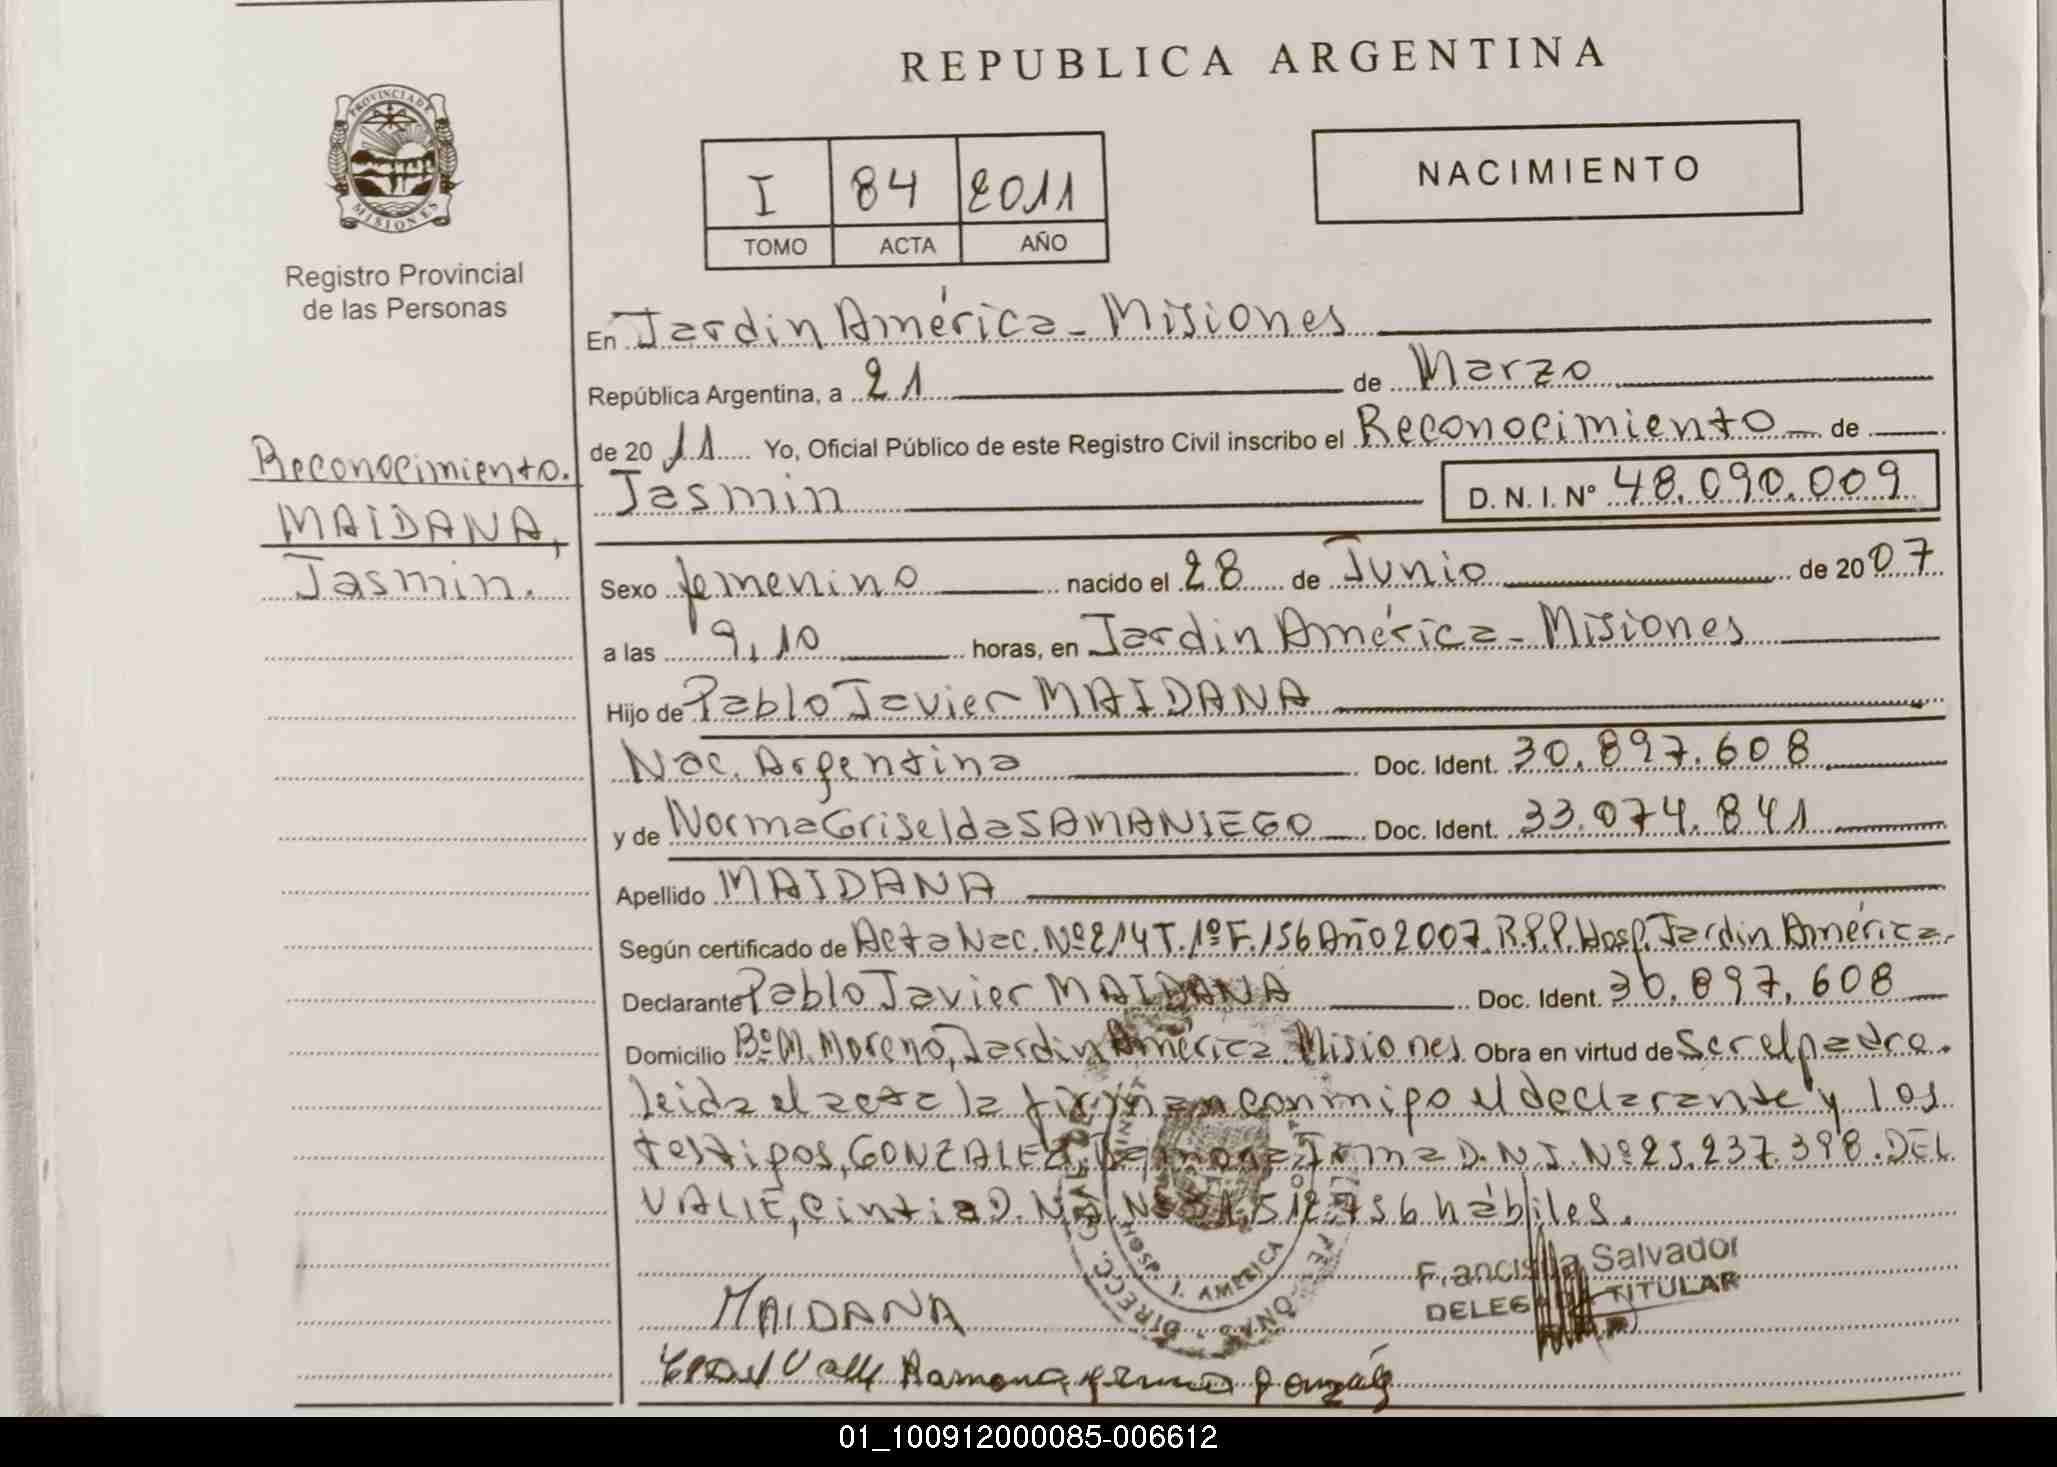 REPUBLICA ARGENTINA
PROVINCIA DE
MISIONES
Registro Provincial
de las Personas
I 84 2011
TOMO ACTA AÑO
NACIMIENTO
Reconocimiento.
MAIDANA,
Jasmin.
En Jardin América - Misiones
República Argentina, a 21 de Marzo
de 2011 Yo, Oficial Público de este Registro Civil inscribo el Reconocimiento de
Jasmin D. N. I. Nº 48.090.009
Sexo femenino nacido el 28 de Junio de 2007
a las 9,10 horas, en Jardin América - Misiones
Hijo de Pablo Javier MAIDANA
Nac. Argentina Doc. Ident. 30.897.608
y de Norma Griselda SAMANIEGO Doc. Ident. 33.074.841
Apellido MAIDANA
Según certificado de Acta Nac. Nº 214 T. 1º F. 156 Año 2007. R.P.P. Hosp. Jardin América.
Declarante Pablo Javier MAIDANA Doc. Ident. 30.897.608
Domicilio Bº M. Moreno, Jardin América Misiones Obra en virtud de Ser el padre.
leida el acta la firman conmigo el declarante y los
testigos, GONZALEZ, Ramona Irma D.N.I. Nº 25.237.398. DEL
VALLE, Cintia D.N.I. Nº 31.512.756 hábiles.
DIRECC. GRAL.
HOSP. J. AMERICA
Salvador
TITULAR
MAIDANA
del Valle Ramona Irma Gonzáles
01_100912000085-006612